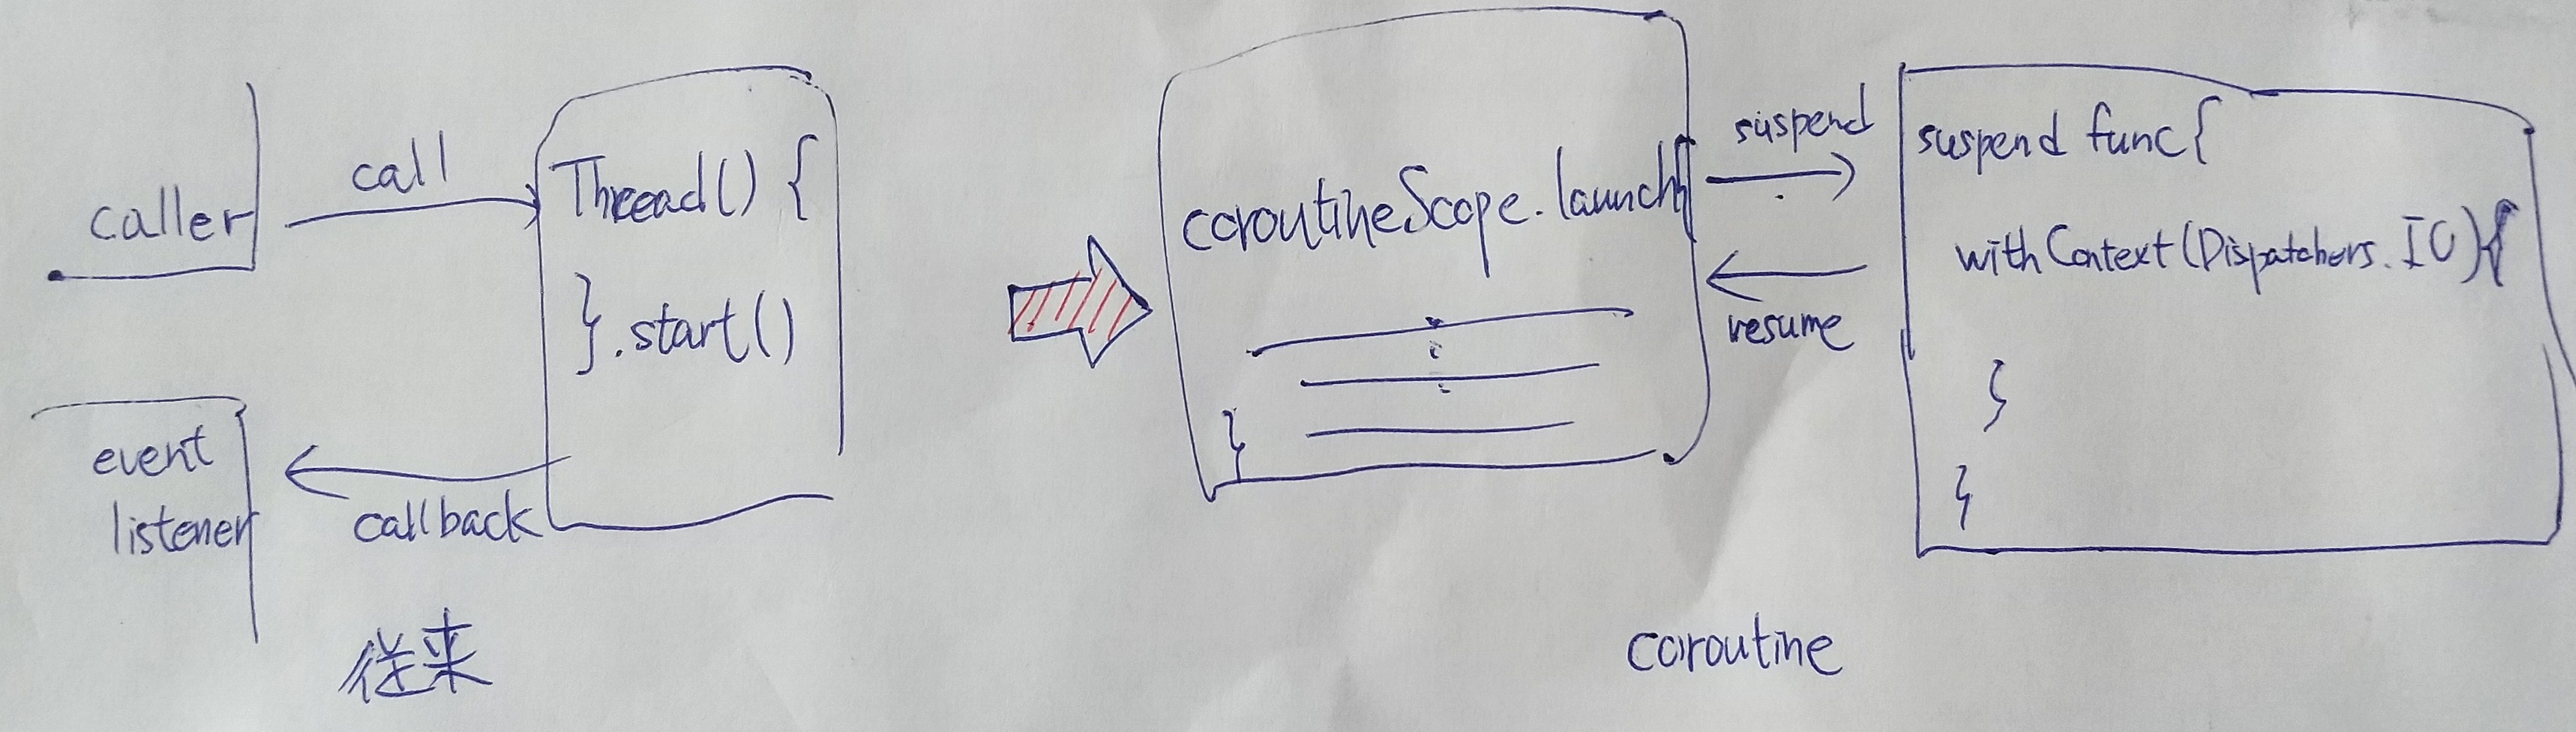 caller
call
Thread() {
}.start()
event
listener
callback
従来
coroutineScope.launch{
}
suspend
resume
suspend func{
withContext(Dispatchers.IO){
}
}
coroutine